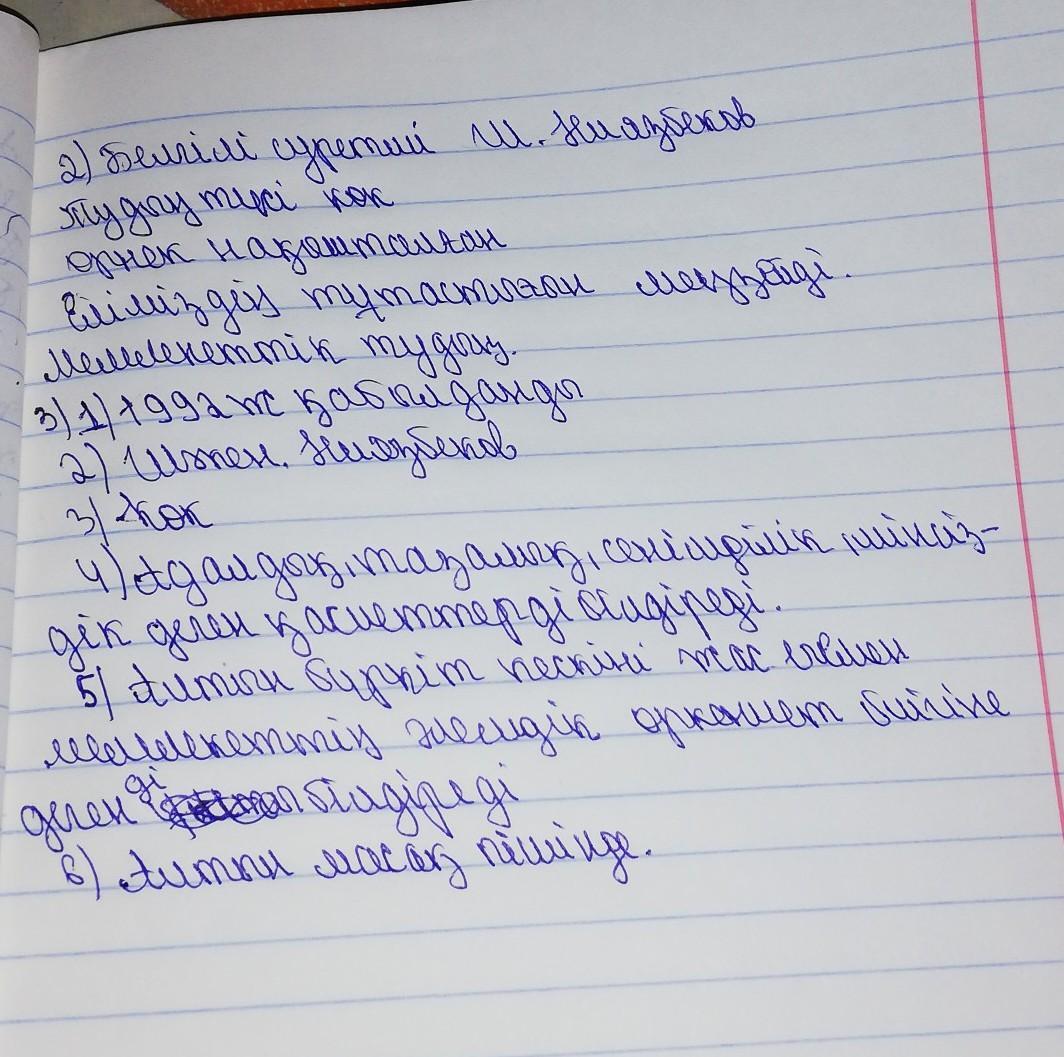 2) Белгілі суретші Ш. Ниязбеков
Тудың түсі көк
өрнек нақышталған
Еліміздің тұтастығын меңзейді.
Мемлекеттік тудың.
3) 1) 1992 ж қабылданды
2) Шәкен. Ниязбеков
3) Көк
4) Адалдық, тазалық, сенімділік, мінсіз-
дік деген қасиеттерді білдіреді.
5) Алтын бүркіт кескіні жас егемен
мемлекеттің әлемдік өркениет биігіне
дегенді білдіреді
6) Алтын масақ пішінде.